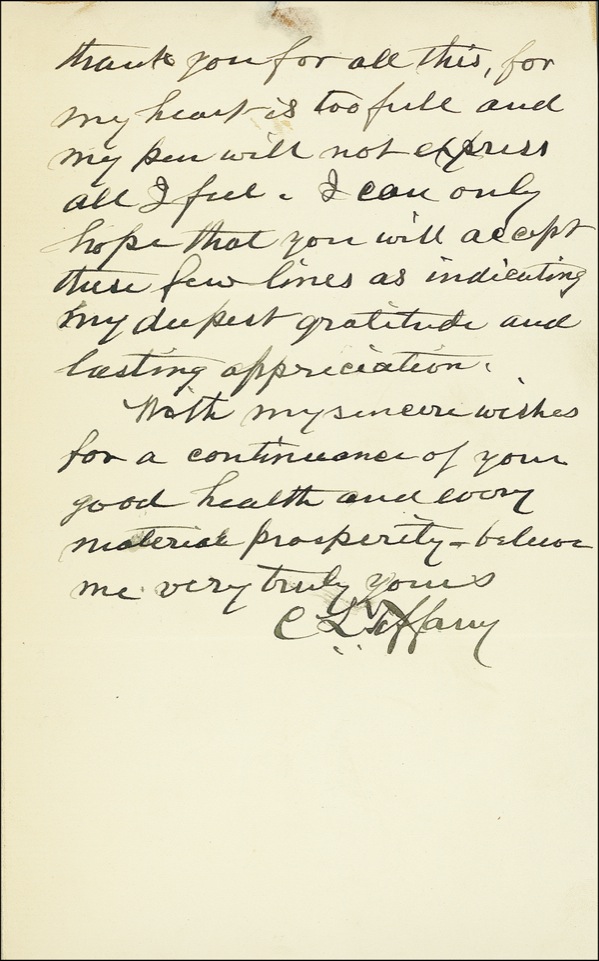 thank you for all this, for
my heart is too full and
my pen will not express
all I feel. I can only
hope that you will accept
these few lines as indicating
my deepest gratitude and
lasting appreciation.
With my sincere wishes
for a continuance of your
good health and every
material prosperity - believe
me very truly yours
C L Tiffany